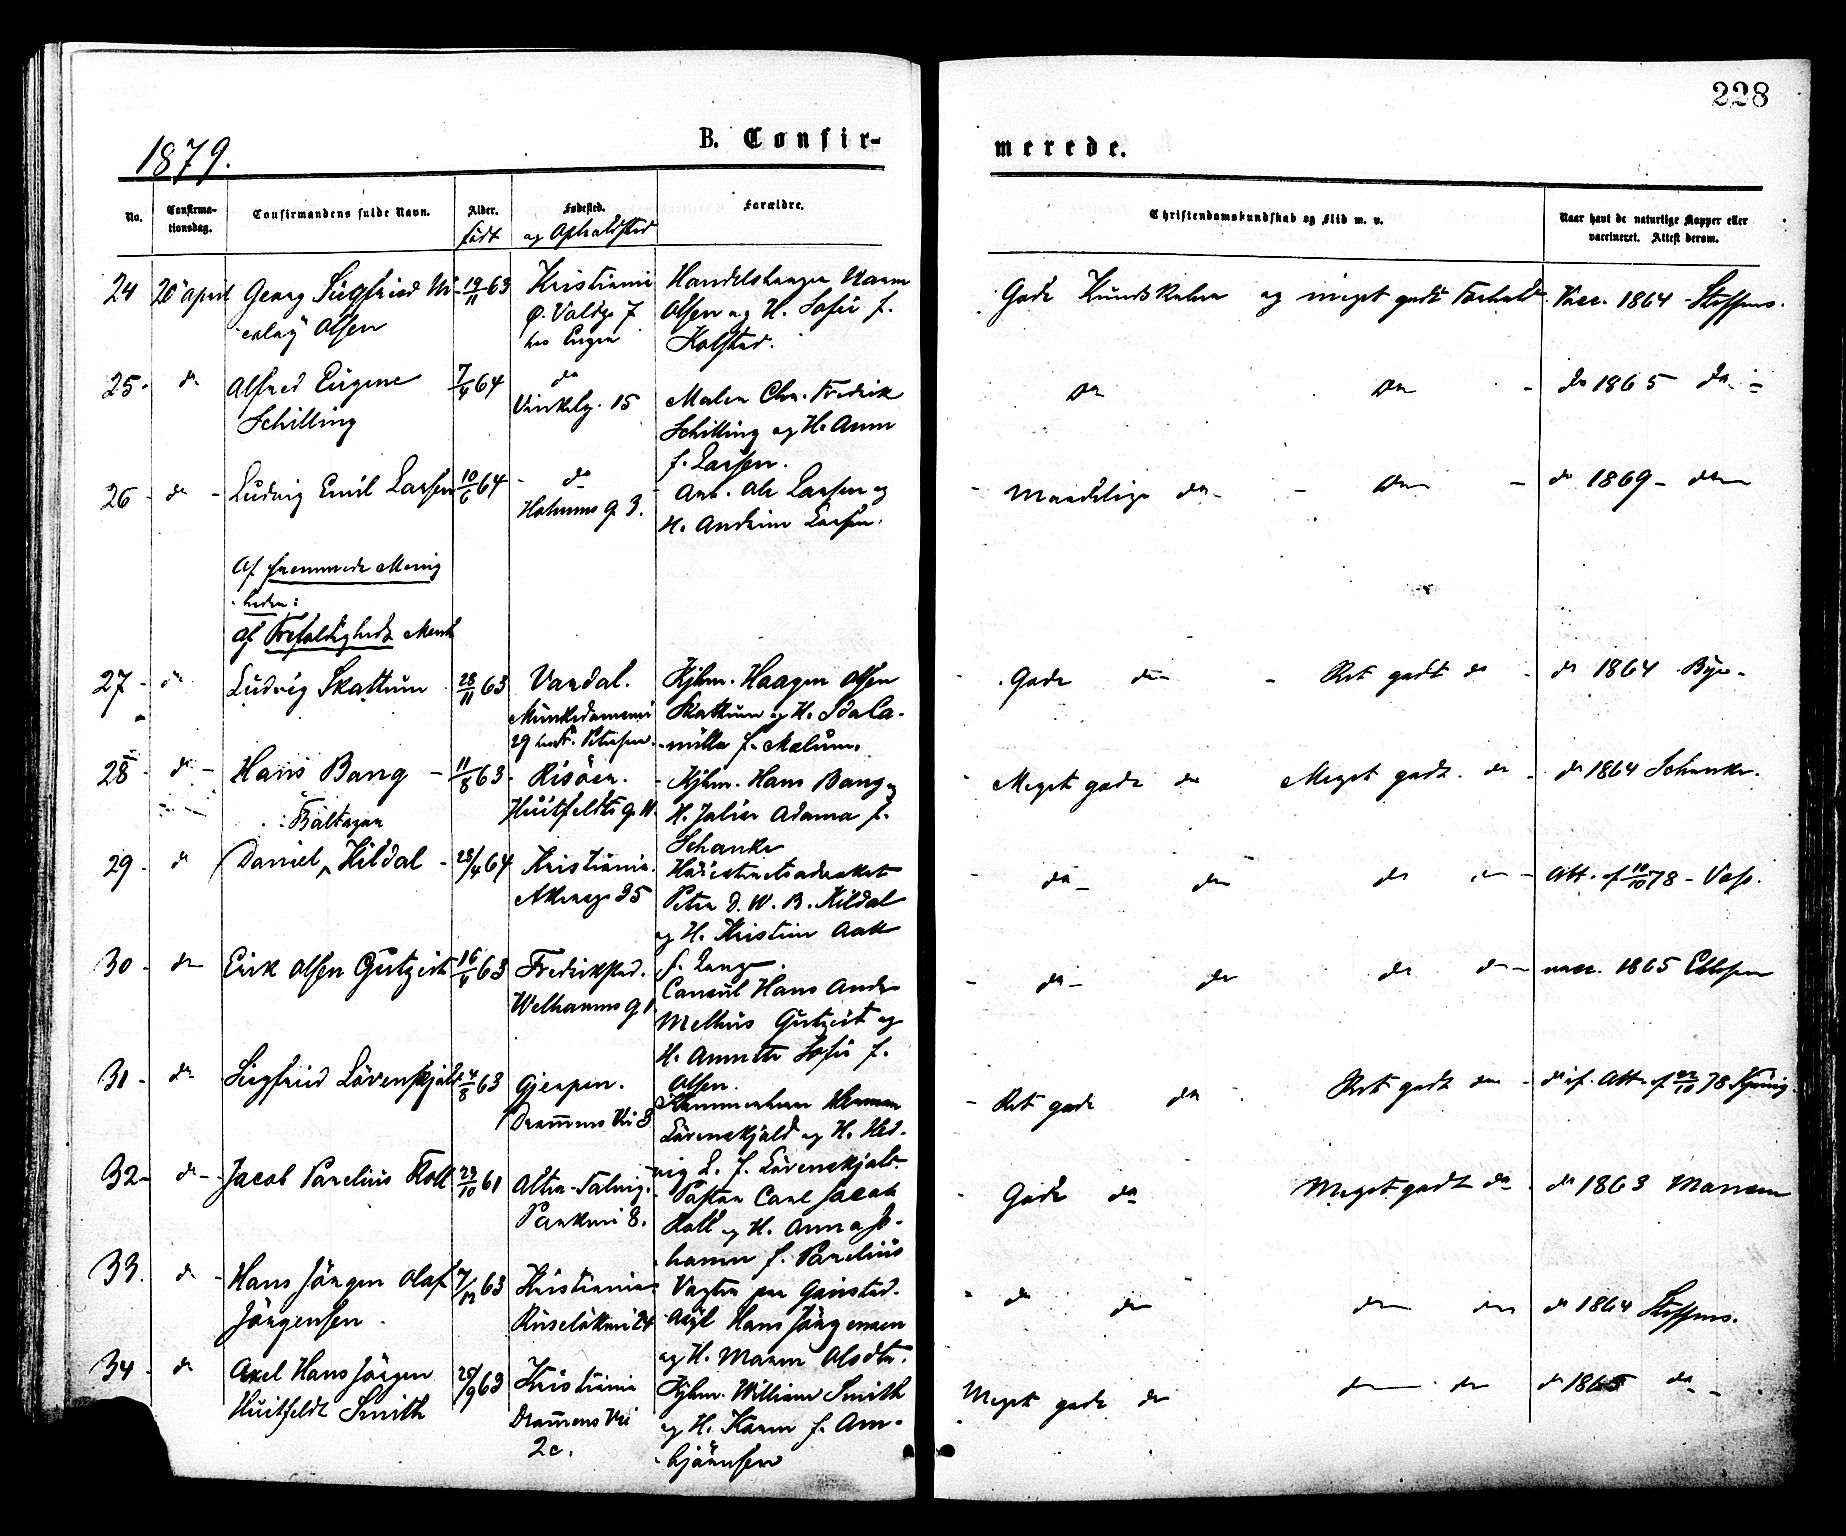 228
1879.
B. Confir-
merede.
No.
Confirma-
tionsdag.
Confirmandens fulde Navn.
Alder.
født
Fødested.
og Opholdsted
Forældre.
Christendomskundskab og Flid m. v.
Naar havt de naturlige Kopper eller
vaccineret. Attest derom.
24 20 April Georg Siegfried Ni- 19/11 63 Kristiania Handelsborger
colay Olsen Ø. Voldg. 7 Olsen og H. Sofie f.
hos Kolstad.
Gode Kundskaber og meget godt Forhold Vacc. 1864 Steffens.
25 do Alfred Eugene 7/4 64 do Maler Chr. Fredrik
Schilling Vinkelg. 15 Schilling og H. Anna
f. Larsen.
Do Do do 1865 do
26 do Ludvig Emil Larsen 10/6 64 do Arb. Ole Larsen og
Holmens G. 3. H. Andrine Larsen.
Maadelige do do 1869
Af fremmede Menig
heder:
Af Trefoldigheds Menh
27 do Ludvig Skattum 28/11 63 Vardal. Kjbm. Haagen Olsen
Munkedamsvei Skattum og H. Ida Ca-
29 Petersen milla f. Mælum.
Gode do Ret godt do do 1864
28 do Hans Bang 11/8 63 Risöer. Kjbm. Hans Bang og
Huitfeldts g. 11 H. Julie Adama f.
Schanke
Meget gode do Meget godt do do 1864 Schanke.
Baltazar
29 do Daniel Kildal 28/4 64 Kristiania. Höiesteretsadvokat
Akersg. 25 Peter D. W. B. Kildal
og H. Kristine
f. Lange.
do do do do Att. af 10/10 78 Voss.
30 do Erik Olsen Gutzeit 16/4 63 Fredrikstad.
Welhavens g. 1 Consul Hans Andr.
Melhus Gutzeit og
H. Annette Sofie f.
Olsen.
do do do do vacc. 1865
31 do Siegfried Lövenskjold 4/8 63 Gjerpen. Kammerherre Herman
Drammens Vei 8 Lövenskjold og H. Hed-
vig L. f. Lövenskjold.
Ret gode do Ret godt do do if. Att. af 22/10 78
32 do Jacob Parelius Koll 23/10 61 Alten-Talvig. Pastor Carl Jacob
Parkvei 8. Koll og H. Anna Jo-
hanne f. Parelius
Gode do Meget godt do do 1863
33. do Hans Jörgen Olaf 7/12 63 Kristiania Vagter paa Grinsted.
Jörgensen Ruselökvei 24 Hans Jörgensen
og H. Maren Olsdtr.
do do do do do 1864 Steffens.
34 do Axel Hans Jörgen 25/9 63 Kristiania Kjbm. William Smith
Huitfeldt Smith Drammens Vei og H. Karen f. Am-
2c. björnsen
Meget gode do do do do 1865 do